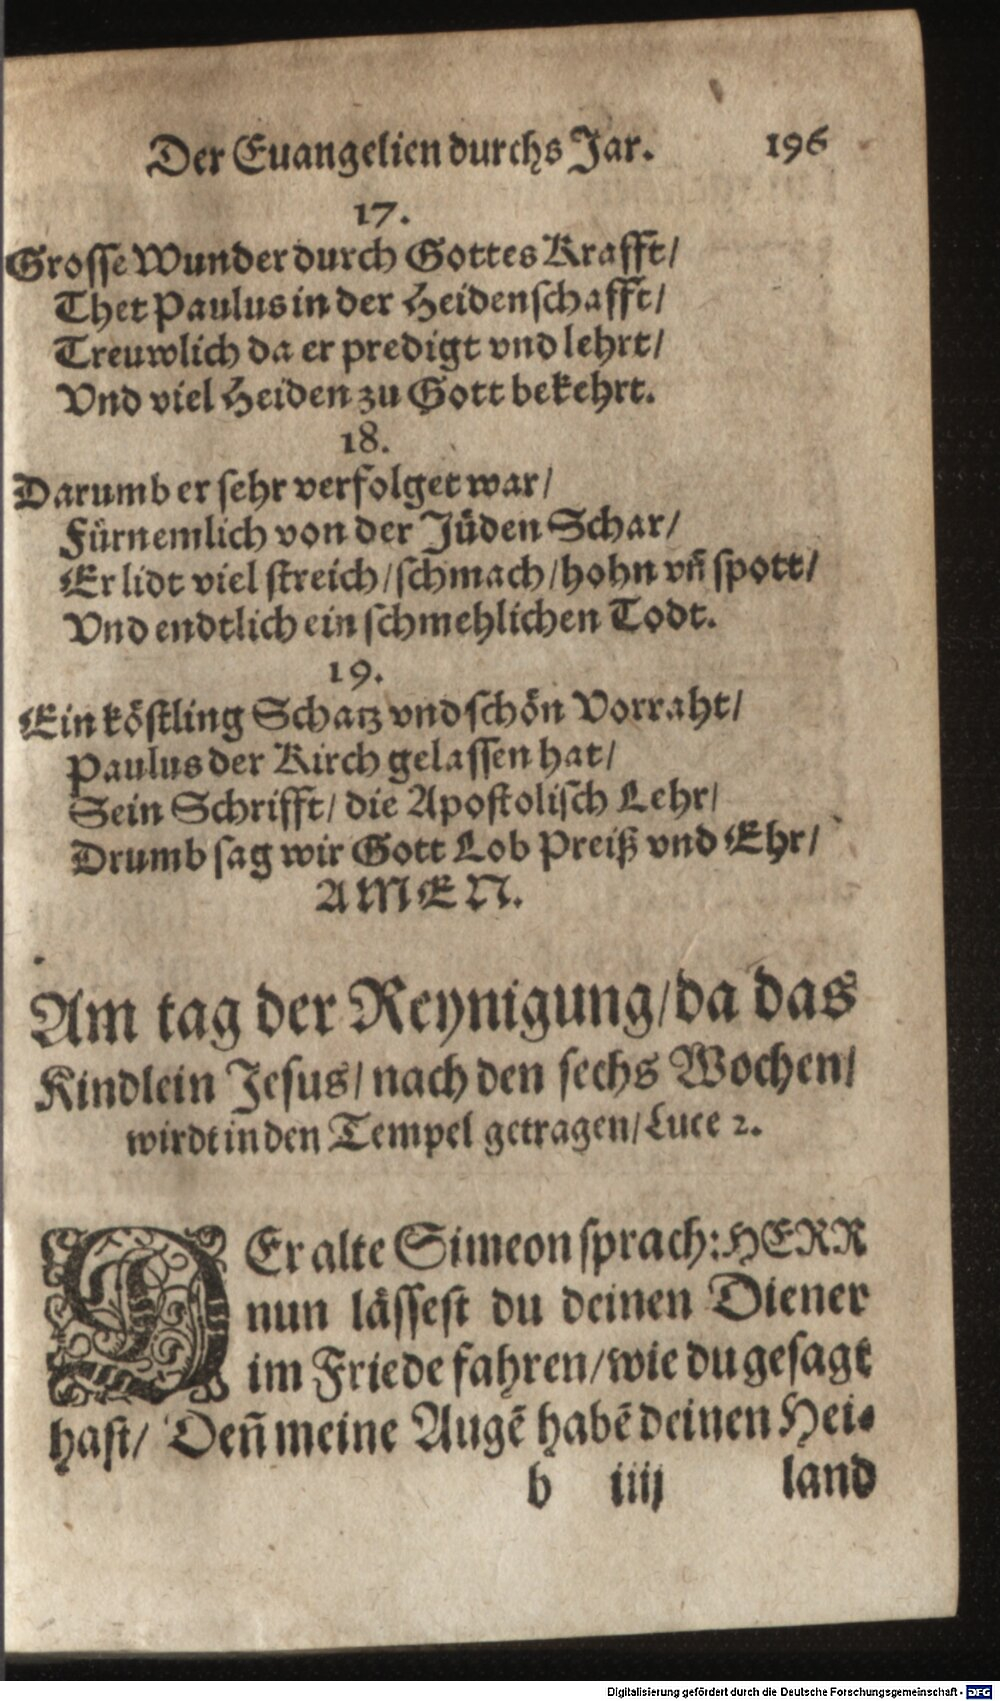 Der Euangelien durchs Jar. 196
17.
Grosse Wunder durch Gottes Krafft/
Thet Paulus in der Heidenschafft/
Treuwlich da er predigt vnd lehrt/
Vnd viel Heiden zu Gott bekehrt.
18.
Darumb er sehr verfolget war/
Fürnemlich von der Jüden Schar/
Er lidt viel streich/schmach/hohn vñ spott/
Vnd endtlich ein schmehlichen Todt.
19.
Ein köstling Schatz vnd schön Vorraht/
Paulus der Kirch gelassen hat/
Sein Schrifft/ die Apostolisch Lehr/
Drumb sag wir Gott Lob Preiß vnd Ehr/
AMEN.
Am tag der Reynigung/da das
Kindlein Jesus/ nach den sechs Wochen/
wirdt in den Tempel getragen/Luce 2.
DEr alte Simeon sprach: HERR
nun lässest du deinen Diener
im Friede fahren/wie du gesagt
hast/ Deñ meine Augẽ habẽ deinen Hei-
b iiij land
Digitalisierung gefördert durch die Deutsche Forschungsgemeinschaft - DFG